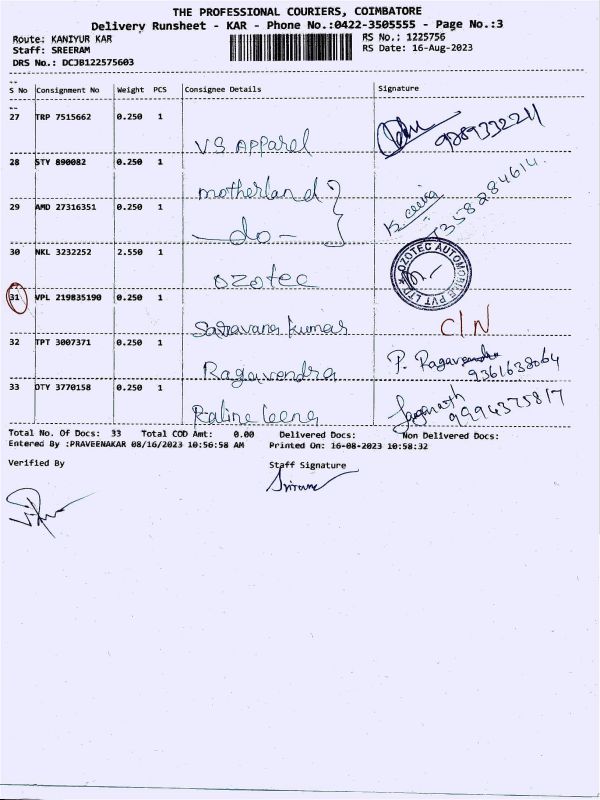 THE PROFESSIONAL COURIERS, COIMBATORE
Delivery Runsheet - KAR - Phone No.:0422-3505555 - Page No.:3
Route: KANIYUR KAR RS No.: 1225756
Staff: SREERAM RS Date: 16-Aug-2023
DRS No.: DCJB122575603
S No Consignment No Weight PCS Consignee Details Signature
27 TRP 7515662 0.250 1 V S Apparel 9789332211
28 STY 890082 0.250 1 Motherland
29 AMD 27316351 0.250 1 - do -
30 NKL 3232252 2.550 1 Ozotec OZOTEC AUTOMOBILE PVT LTD
31 VPL 219835190 0.250 1 Saravana kumar C/N
32 TPT 3007371 0.250 1 Ragavendra P. Ragavendra
9361638064
33 DTY 3770158 0.250 1 Jaganath
9994375817
Total No. Of Docs: 33 Total COD Amt: 0.00 Delivered Docs: Non Delivered Docs:
Entered By :PRAVEENAKAR 08/16/2023 10:56:58 AM Printed On: 16-08-2023 10:58:32
Verified By Staff Signature